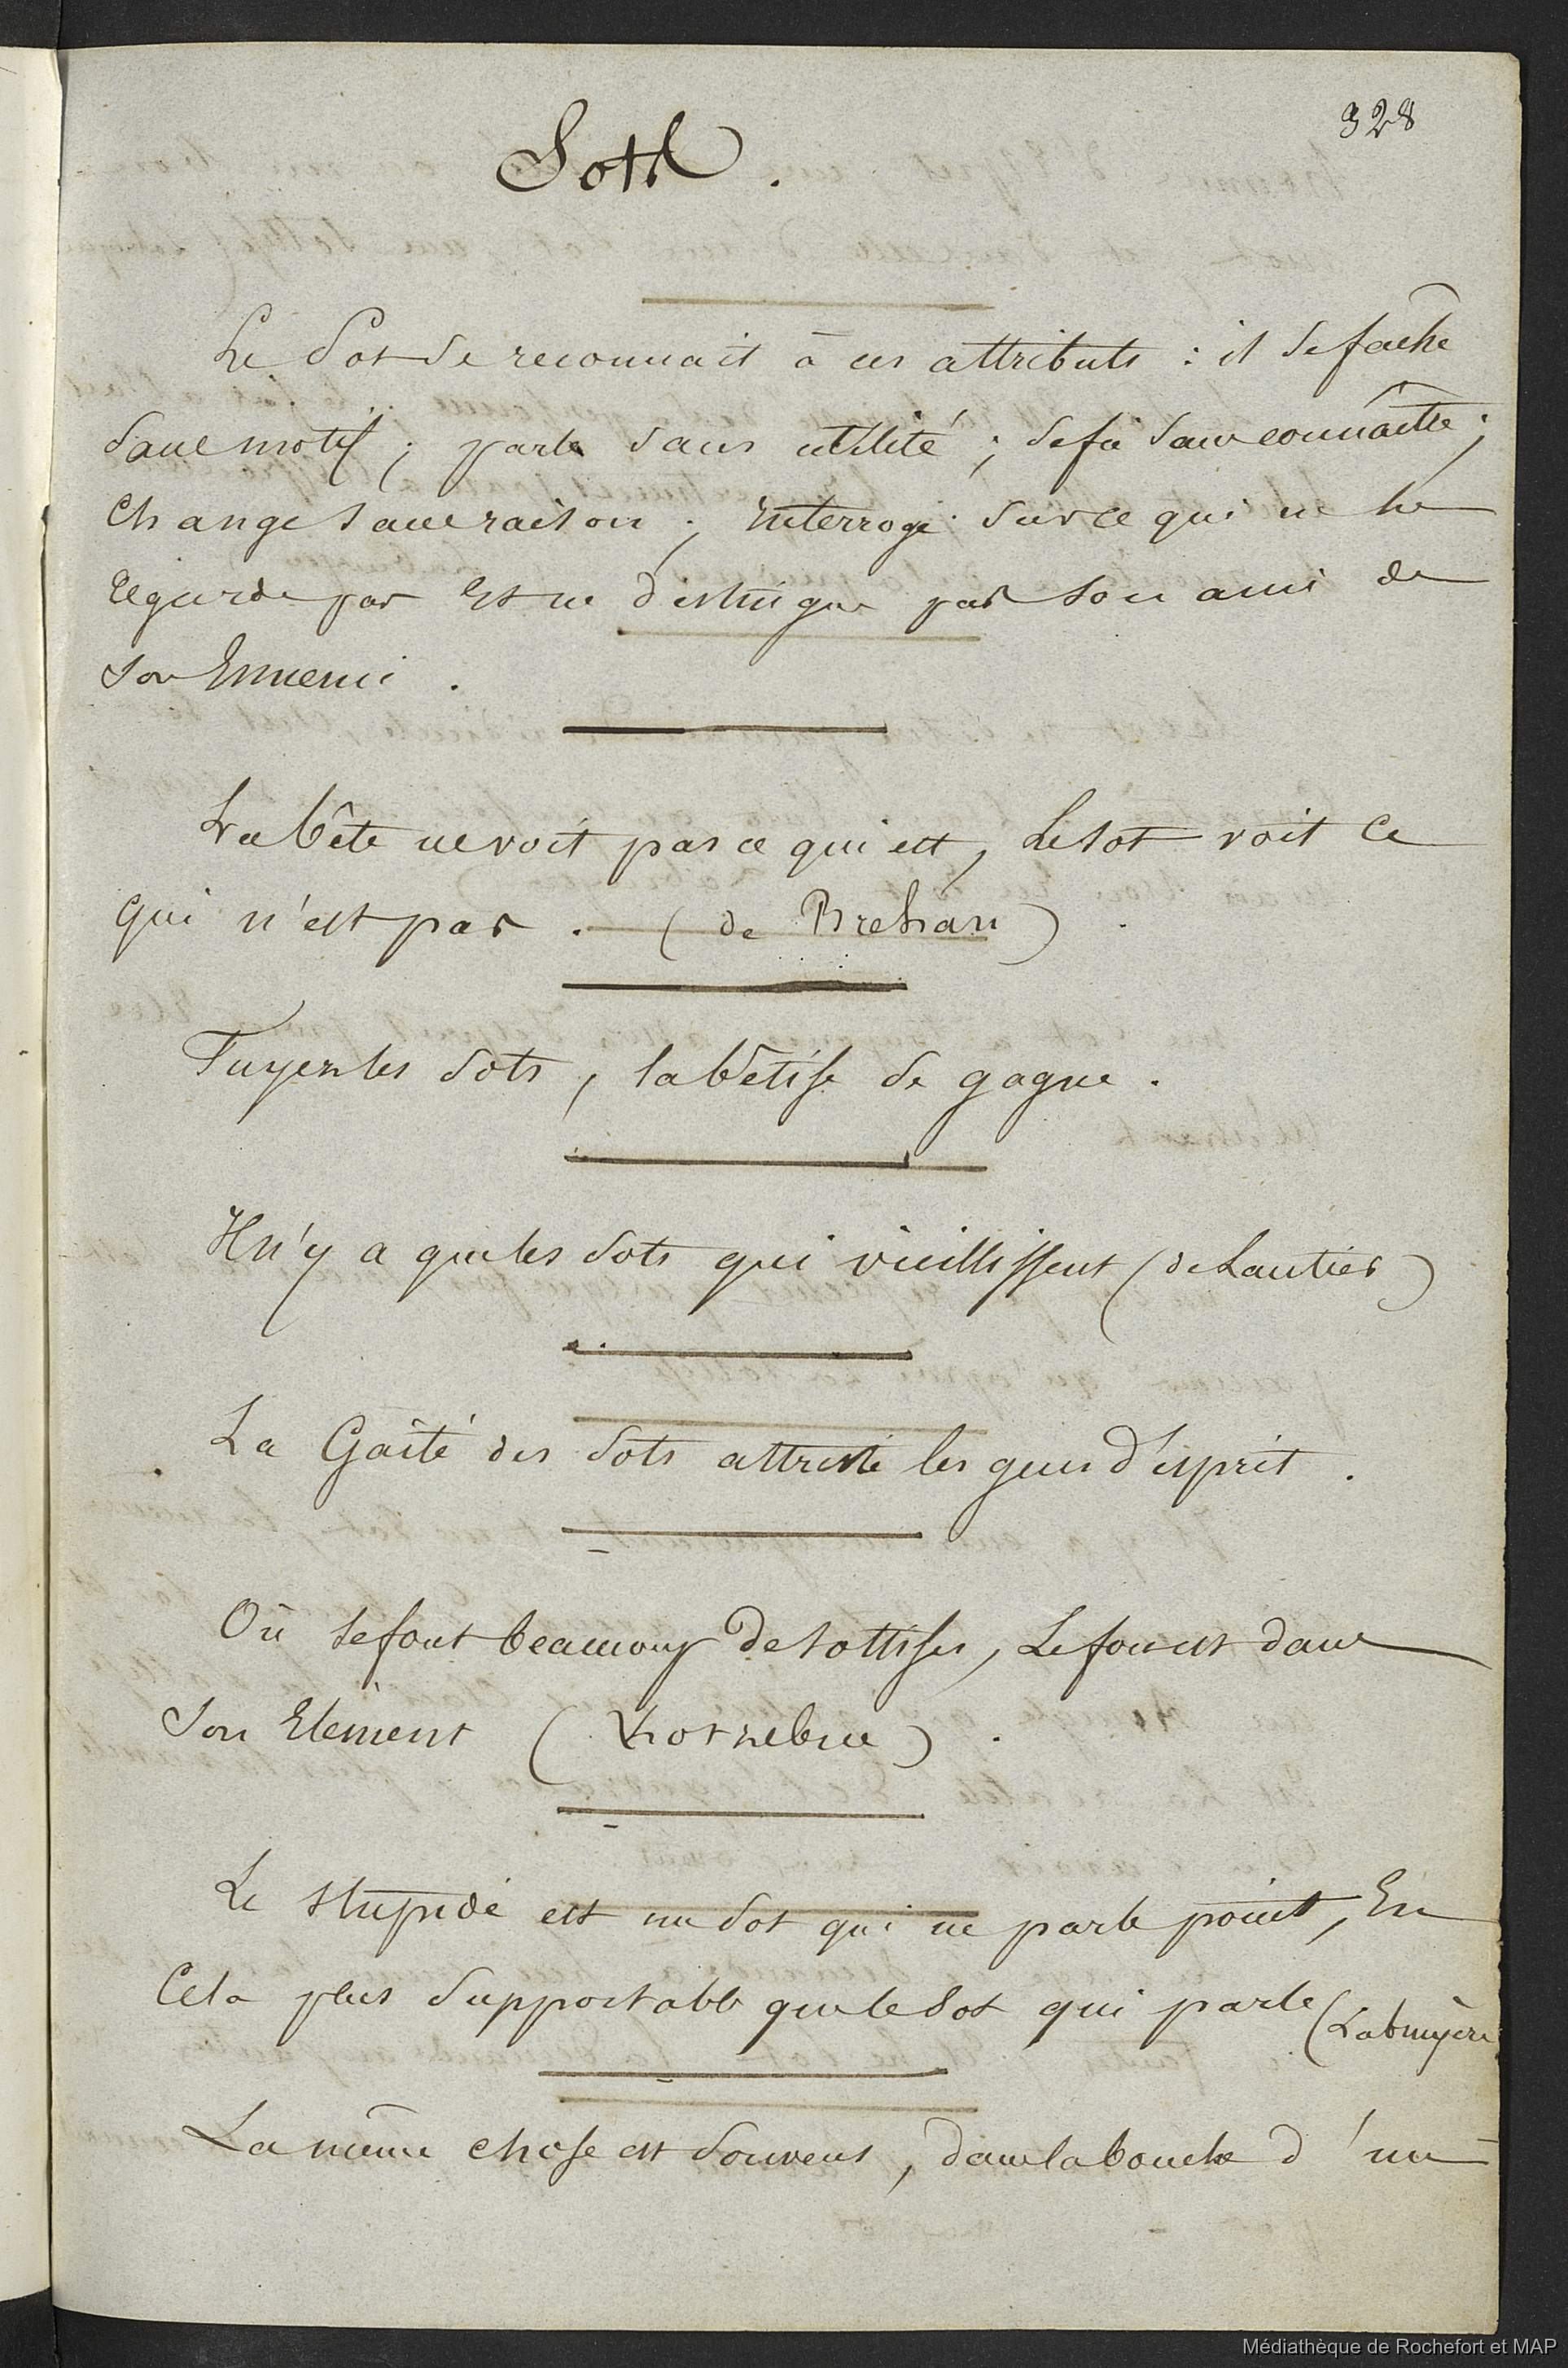 328
Sots.
Le Sot se reconnait à ces attributs : il se fache
sans motif ; parle sans utilité ; se fie sans connaître ;
change sans raison ; interroge sur ce qui ne le
regarde pas Et ne distingue pas son ami de
son Ennemi .
La bête ne voit pas ce qui est, le sot voit ce
qui n'est pas . (de Brehan) .
Fuyez les sots , la bêtise se gagne .
Il n'y a que les sots qui vieillissent (de Lantier)
La Gaîté des sots attriste les gens d'esprit .
Où se font beaucoup de sottises, le fou est dans
son Element (Kotzebue) .
Le stupide est un sot qui ne parle point, En
Cela plus supportable que le sot qui parle (Labruyère
La même chose est souvent , dans la bouche d'un
Médiathèque de Rochefort et MAP